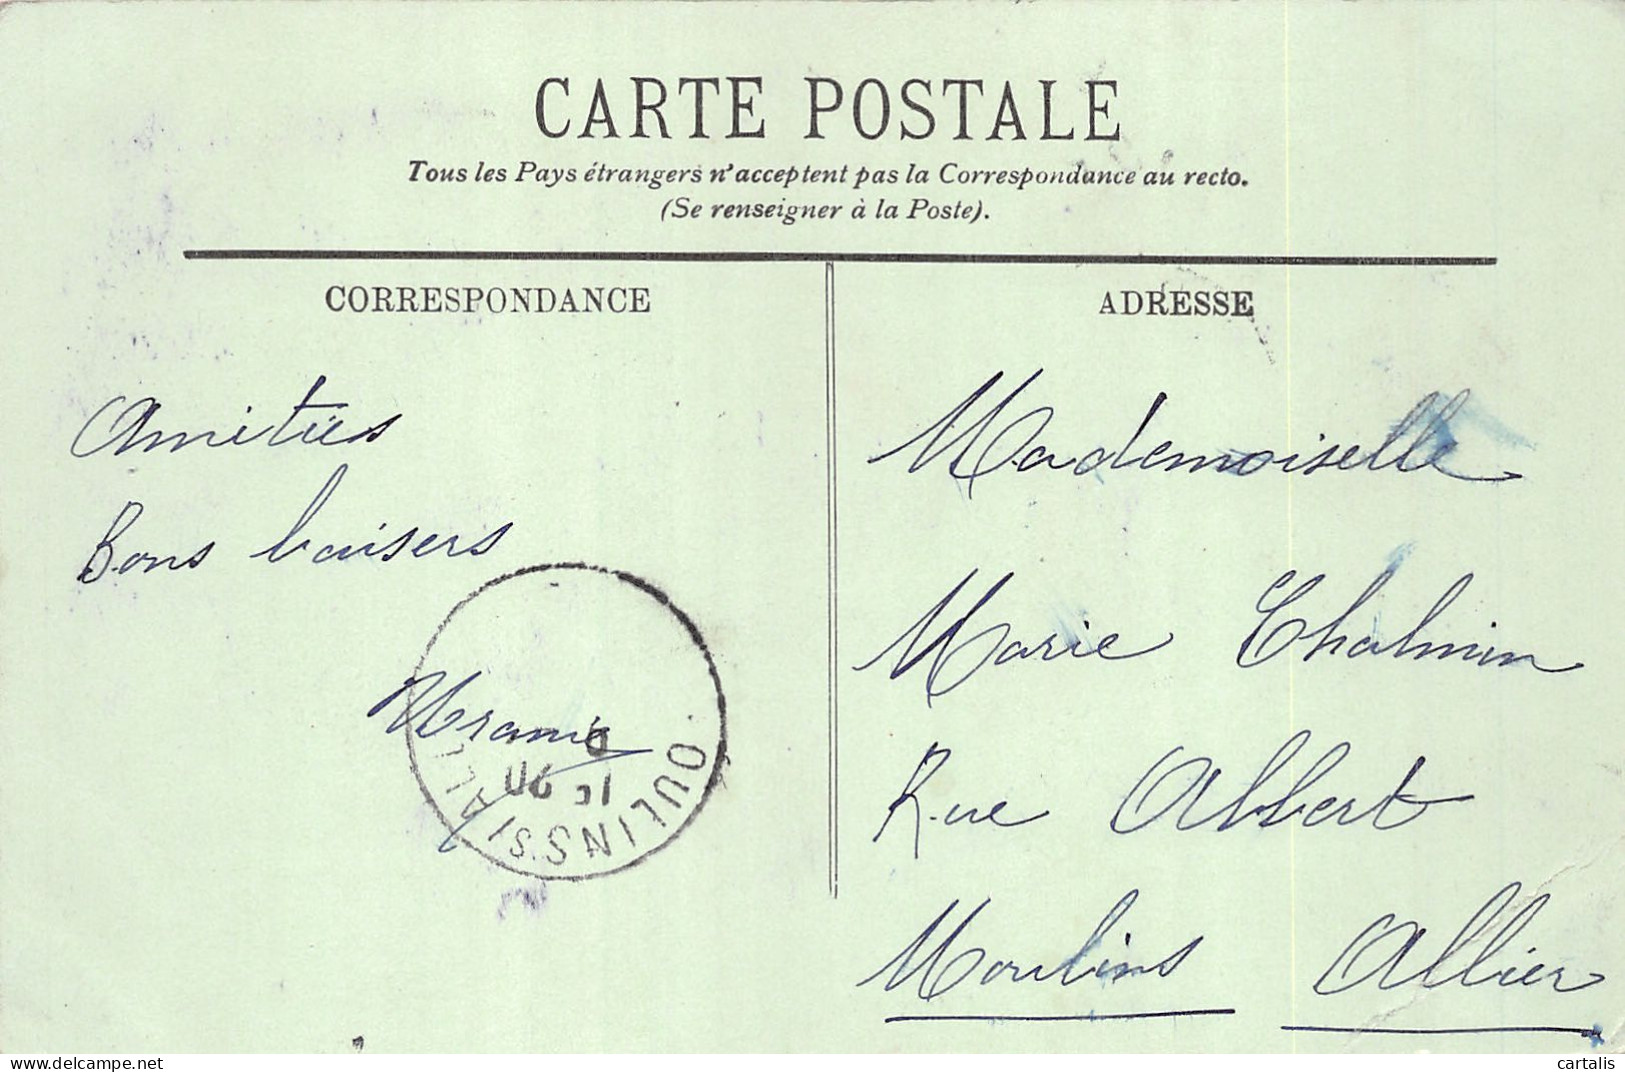 CARTE POSTALE
Tous les Pays étrangers n'acceptent pas la Correspondance au recto.
(Se renseigner à la Poste).
CORRESPONDANCE
Amitiés
Bons baisers
Uranie
OULINS SI ALLI
ADRESSE
Mademoiselle
Marie Chalmin
Rue Abbert
Moulins Allier
delcampe.net
cartalis